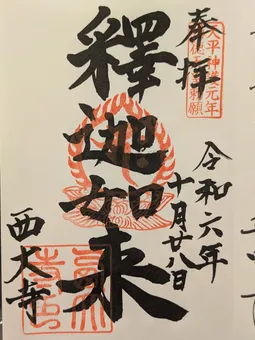 奉拝
天平神護元年
称徳天皇勅願
令和六年
十月廿八日
釋迦如来
西大寺